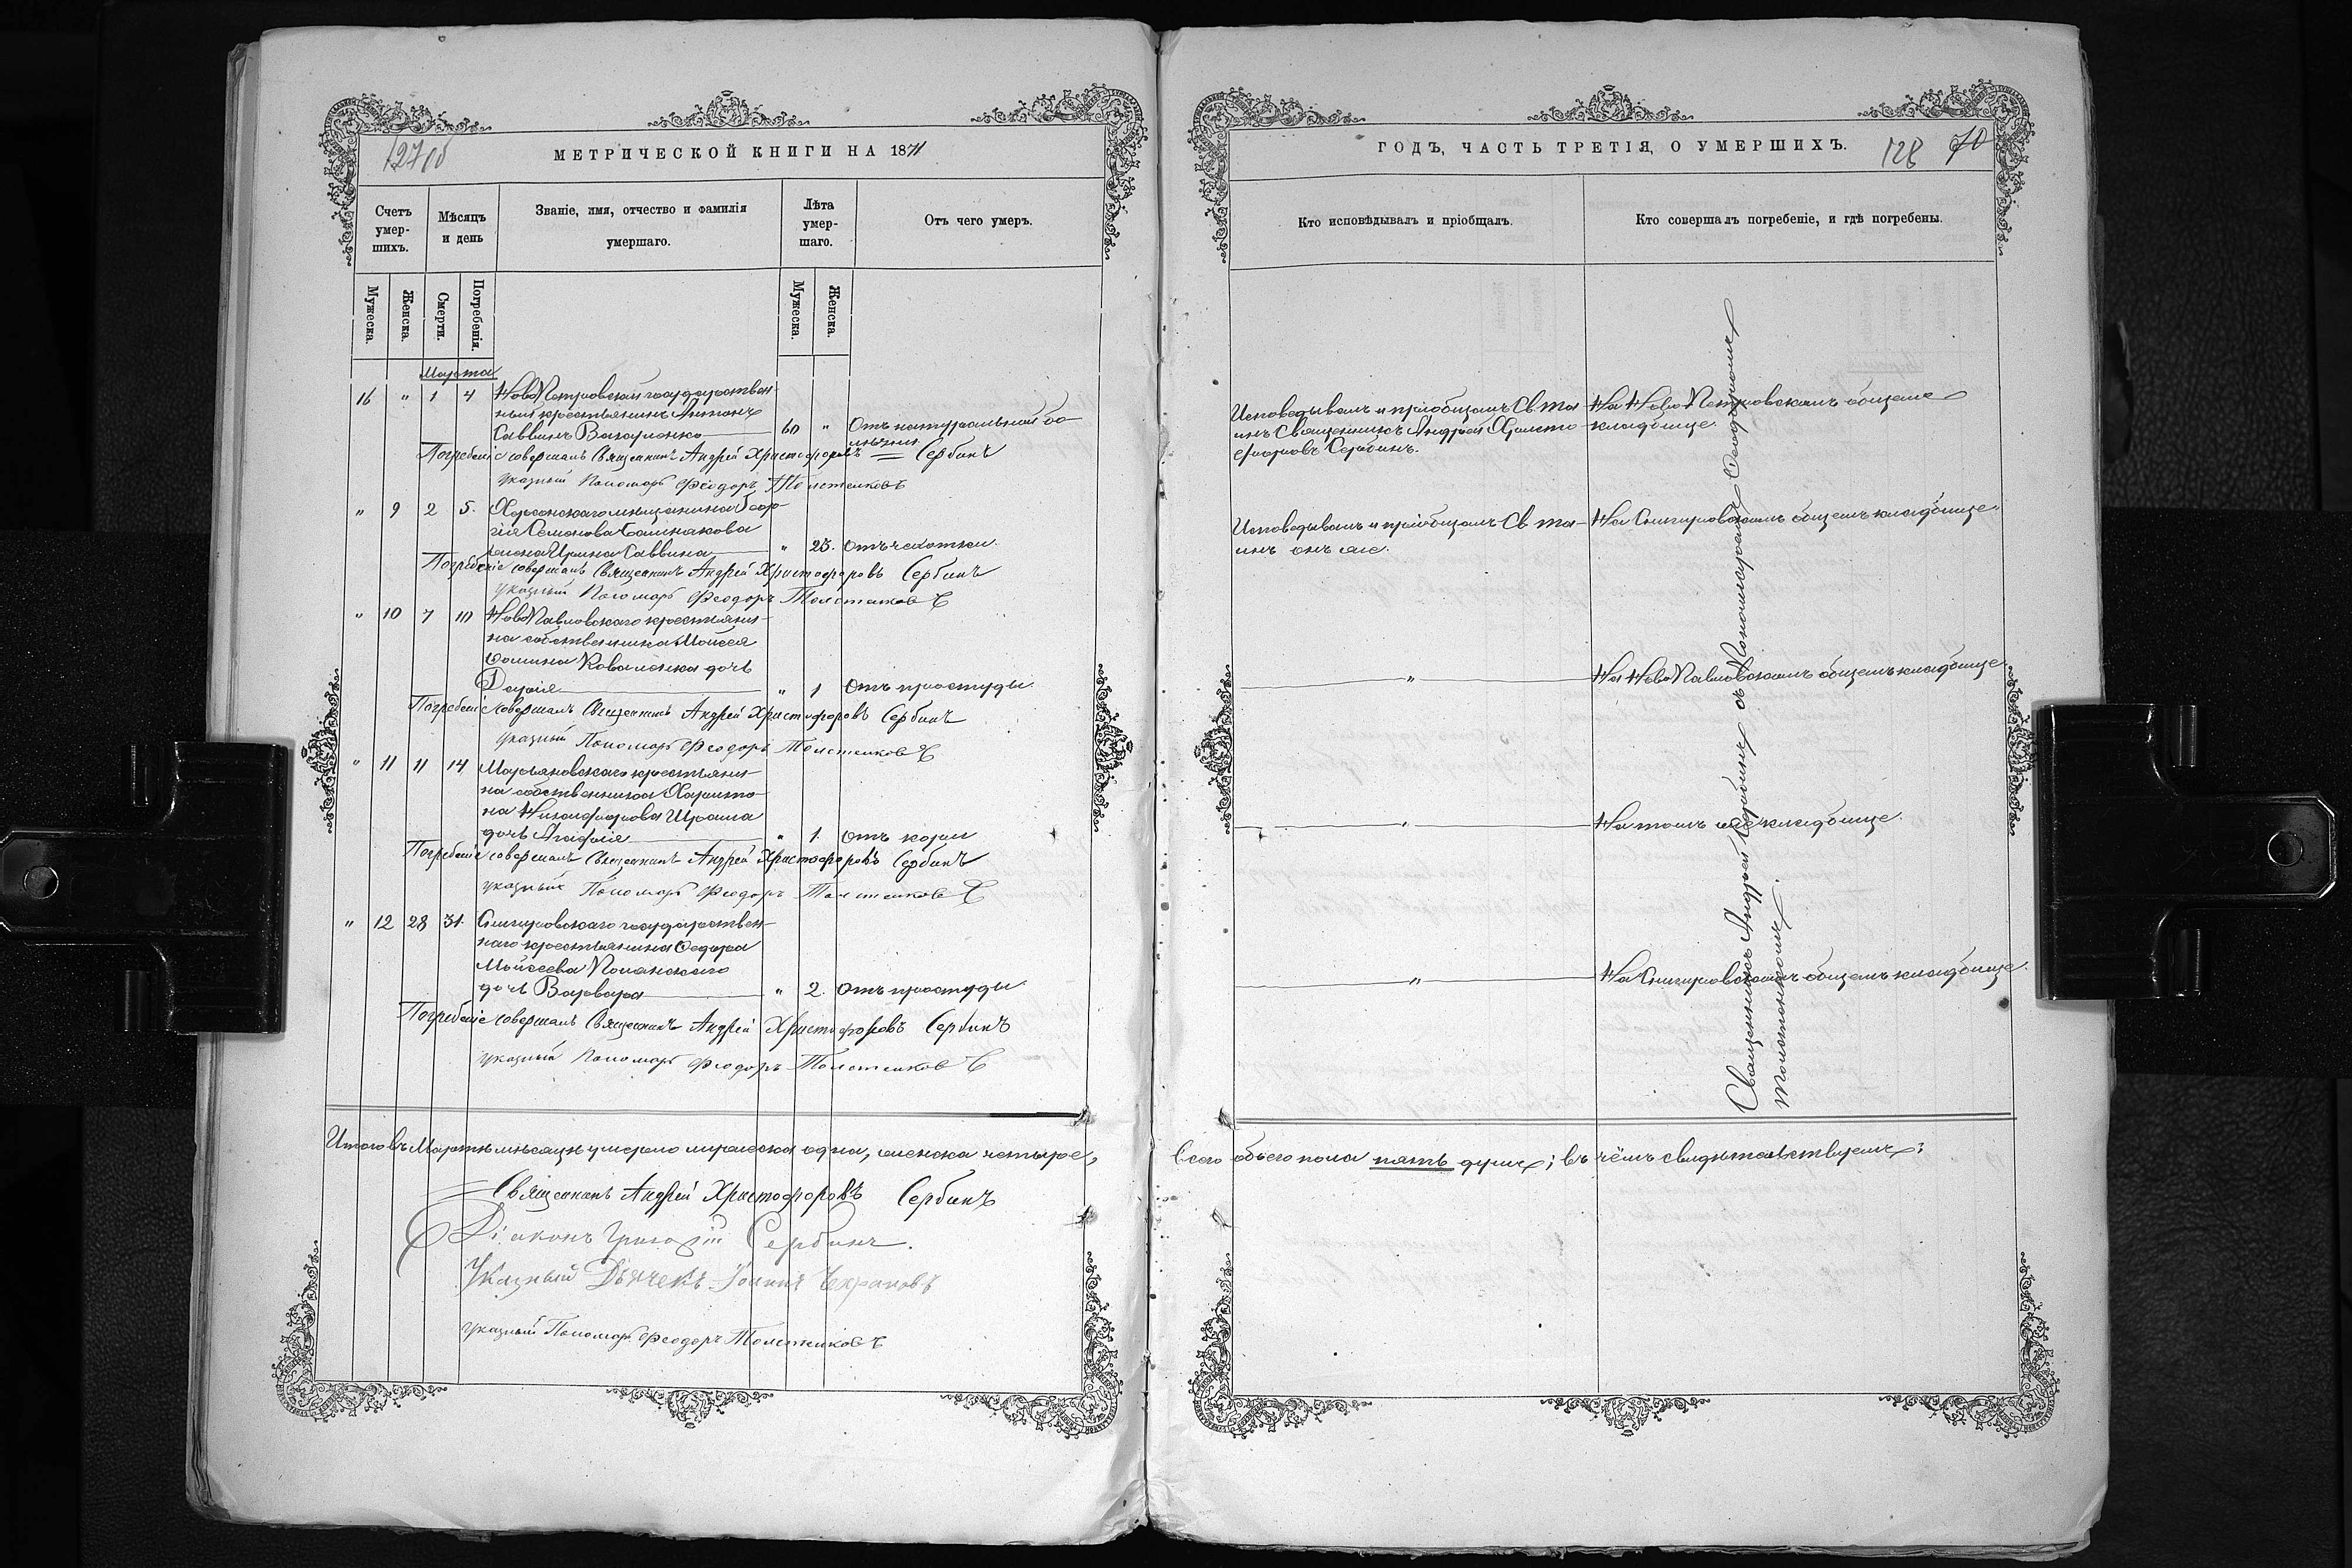 127об
МЕТРИЧЕСКОЙ КНИГИ НА 1871
Счетъ умер-шихъ.
Мѣсяцъ и день
Званіе, имя, отчество и фамилія умершаго.
Лѣта умер-шаго.
Отъ чего умеръ.
Мужеска.
Женска.
Смерти.
Погребенія.
Мужеска.
Женска.
Марта
16 " 1 4 НовоПетровскій государствен-
ный крестьянинъ Антонъ
Саввинъ Вакаленко 60 " Отъ натуральной бо
лѣзни.
Погребеніе совершалъ Священникъ Андрей Христофоровъ Сербинъ
указный Пономарь Феодоръ Толстиковъ
" 9 2 5. Херсонскаго мѣщанина Геор-
гія Семенова
жена Ирина Саввина " 25. Отъ чахотки.
Погребеніе совершалъ Священникъ Андрей Христофоровъ Сербинъ
указный Пономарь Феодоръ Толстиковъ
" 10 7 10 НовоПавловскаго крестьяни-
на собственника Моисея
Фомина Коваленка дочь
Дарія " 1 Отъ простуды.
Погребеніе совершалъ Священникъ Андрей Христофоровъ Сербинъ
указный Пономарь Феодоръ Толстиковъ
" 11 11 14 Марьяновскаго крестьяни-
на собственника Харито-
на Никифорова
дочь Агафія " 1. Отъ кори
Погребеніе совершалъ Священникъ Андрей Христофоровъ Сербинъ
указный Пономарь Феодоръ Толстиковъ
" 12 28 31. Снигировскаго государствен-
наго крестьянина Ѳедора
Мойсеева
дочь Варвара " 2. Отъ простуды
Погребеніе совершалъ Священникъ Андрей Христофоровъ Сербинъ
указный Пономарь Феодоръ Толстиковъ
Итого въ Мартѣ мѣсяцѣ умерло мужеска одна, женска четыре,
Священникъ Андрей Христофоровъ Сербинъ
Діаконъ Григорій Сербинъ.
Указный Дьячекъ Іоаннъ
указный Пономарь Феодоръ Толстиковъ
ГОДЪ, ЧАСТЬ ТРЕТІЯ, О УМЕРШИХЪ.
128 70
Кто исповѣдывалъ и пріобщалъ.
Кто совершалъ погребеніе, и гдѣ погребены.
Исповедывалъ и пріобщалъ Св. та-
инъ Священникъ Андрей Христо-
форовъ Сербинъ.
На Ново Петровскомъ общемъ
кладбище.
Исповедывалъ и пріобщалъ Св. та-
инъ онъ же.
На Снигировскомъ общемъ кладбище.
"
На НовоПавловскомъ общемъ кладбище
"
На томъ же кладбище.
"
На Снигировскомъ общемъ кладбище.
Священникъ Андрей Сербинъ съ Пономаремъ Феодоромъ
Толстиковымъ.
всего обоего пола пять душъ; въ чёмъ свидѣтельствуемъ: